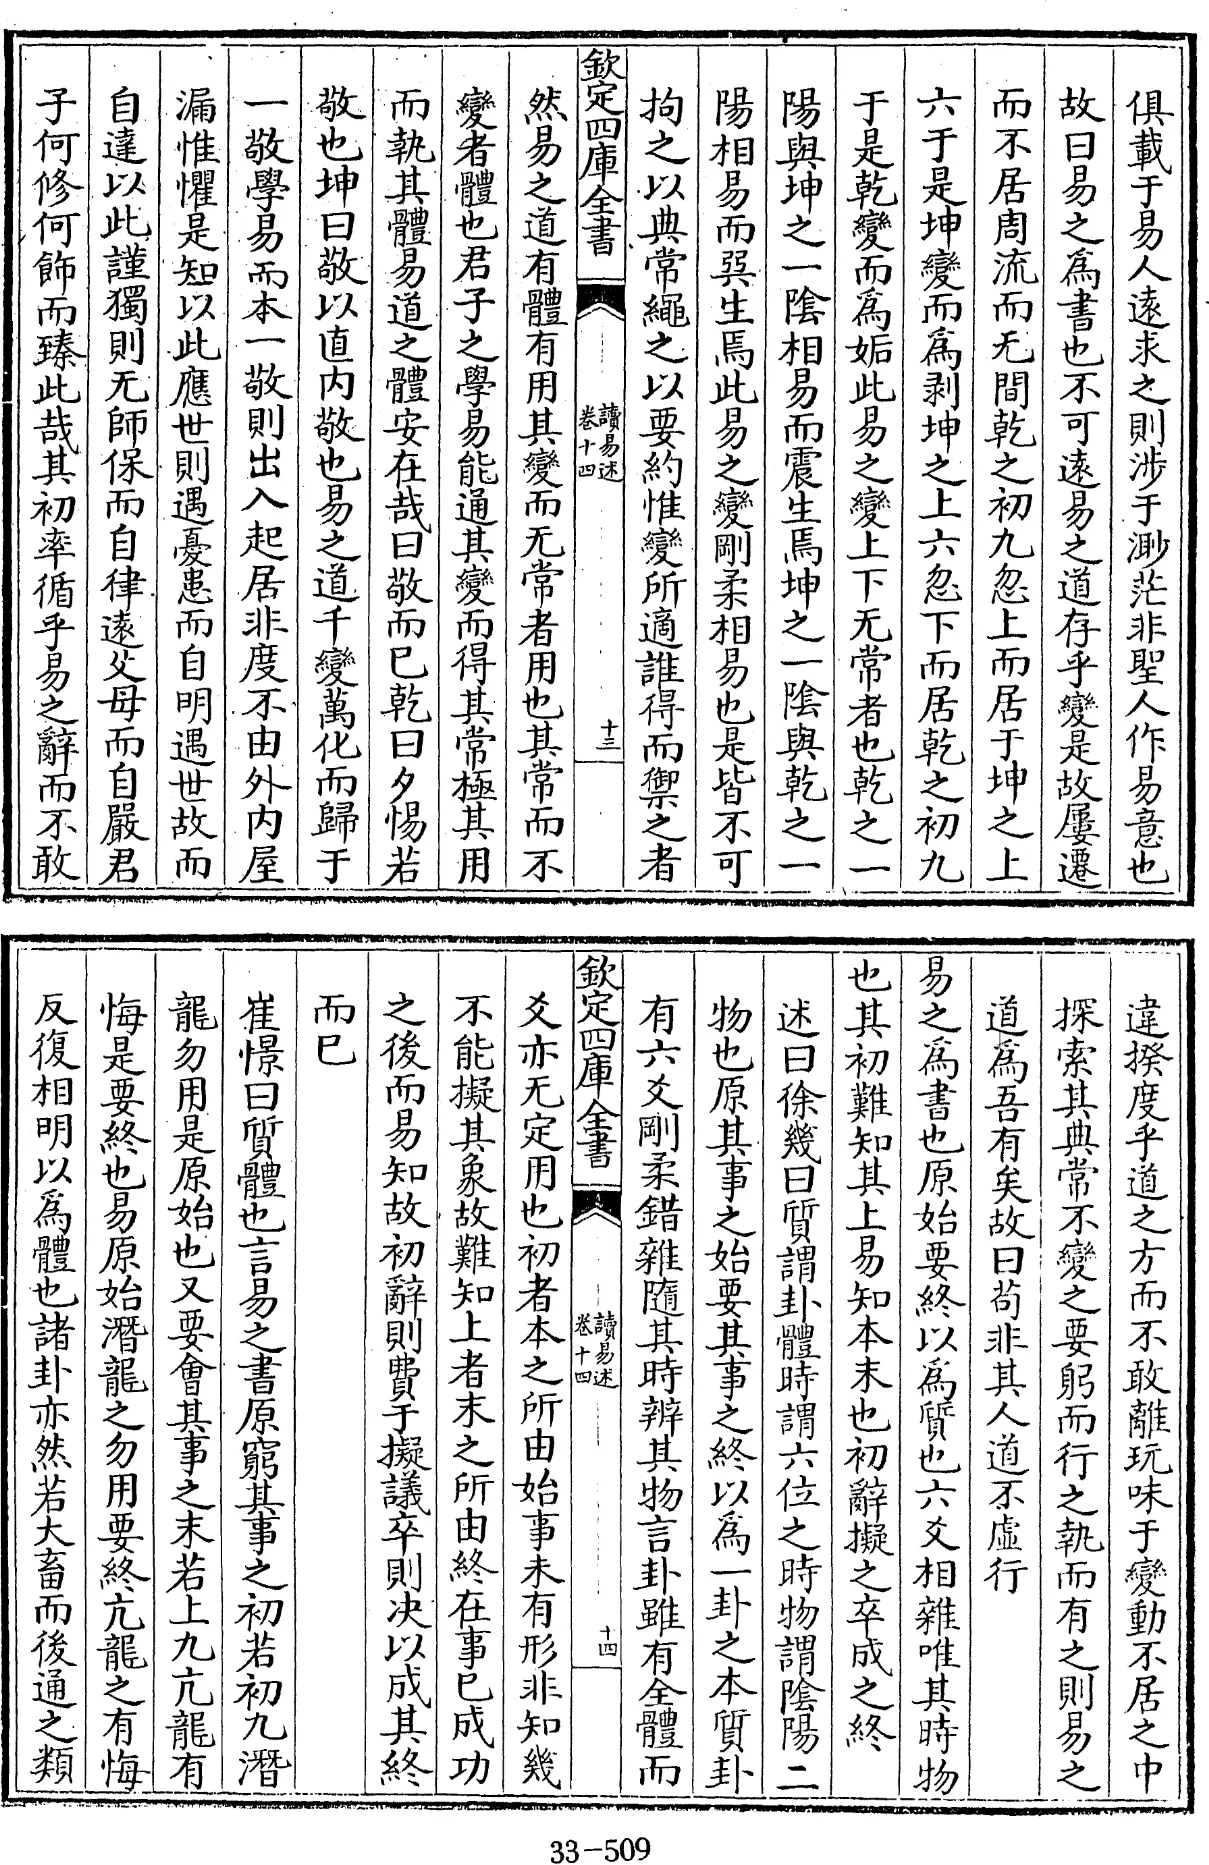 俱載于易人遠求之則涉于渺茫非聖人作易意也
故曰易之爲書也不可遠易之道存乎變是故屢遷
而不居周流而无間乾之初九忽上而居于坤之上
六于是坤變而爲剥坤之上六忽下而居乾之初九
于是乾變而爲姤此易之變上下无常者也乾之一
陽與坤之一陰相易而震生焉坤之一陰與乾之一
陽相易而巽生焉此易之變剛柔相易也是皆不可
拘之以典常繩之以要約惟變所適誰得而禦之者
欽定四庫全書
讀易述
卷十四
十三
然易之道有體有用其變而无常者用也其常而不
變者體也君子之學易能通其變而得其常極其用
而執其體易道之體安在哉曰敬而已乾曰夕惕若
敬也坤曰敬以直内敬也易之道千變萬化而歸于
一敬學易而本一敬則出入起居非度不由外内屋
漏惟懼是知以此應世則遇憂患而自明遇世故而
自達以此謹獨則无師保而自律遠父母而自嚴君
子何修何飾而臻此哉其初率循乎易之辭而不敢
違揆度乎道之方而不敢離玩味于變動不居之中
探索其典常不變之要躬而行之執而有之則易之
道爲吾有矣故曰苟非其人道不虛行
易之爲書也原始要終以爲質也六爻相雜唯其時物
也其初難知其上易知本末也初辭擬之卒成之終
述曰徐幾曰質謂卦體時謂六位之時物謂陰陽二
物也原其事之始要其事之終以爲一卦之本質卦
有六爻剛柔錯雜隨其時辨其物言卦雖有全體而
欽定四庫全書
讀易述
卷十四
十四
爻亦无定用也初者本之所由始事未有形非知幾
不能擬其象故難知上者末之所由終在事已成功
之後而易知故初辭則費于擬議卒則決以成其終
而已
崔憬曰質體也言易之書原窮其事之初若初九潛
龍勿用是原始也又要會其事之末若上九亢龍有
悔是要終也易原始潛龍之勿用要終亢龍之有悔
反復相明以爲體也諸卦亦然若大畜而後通之類
33-509